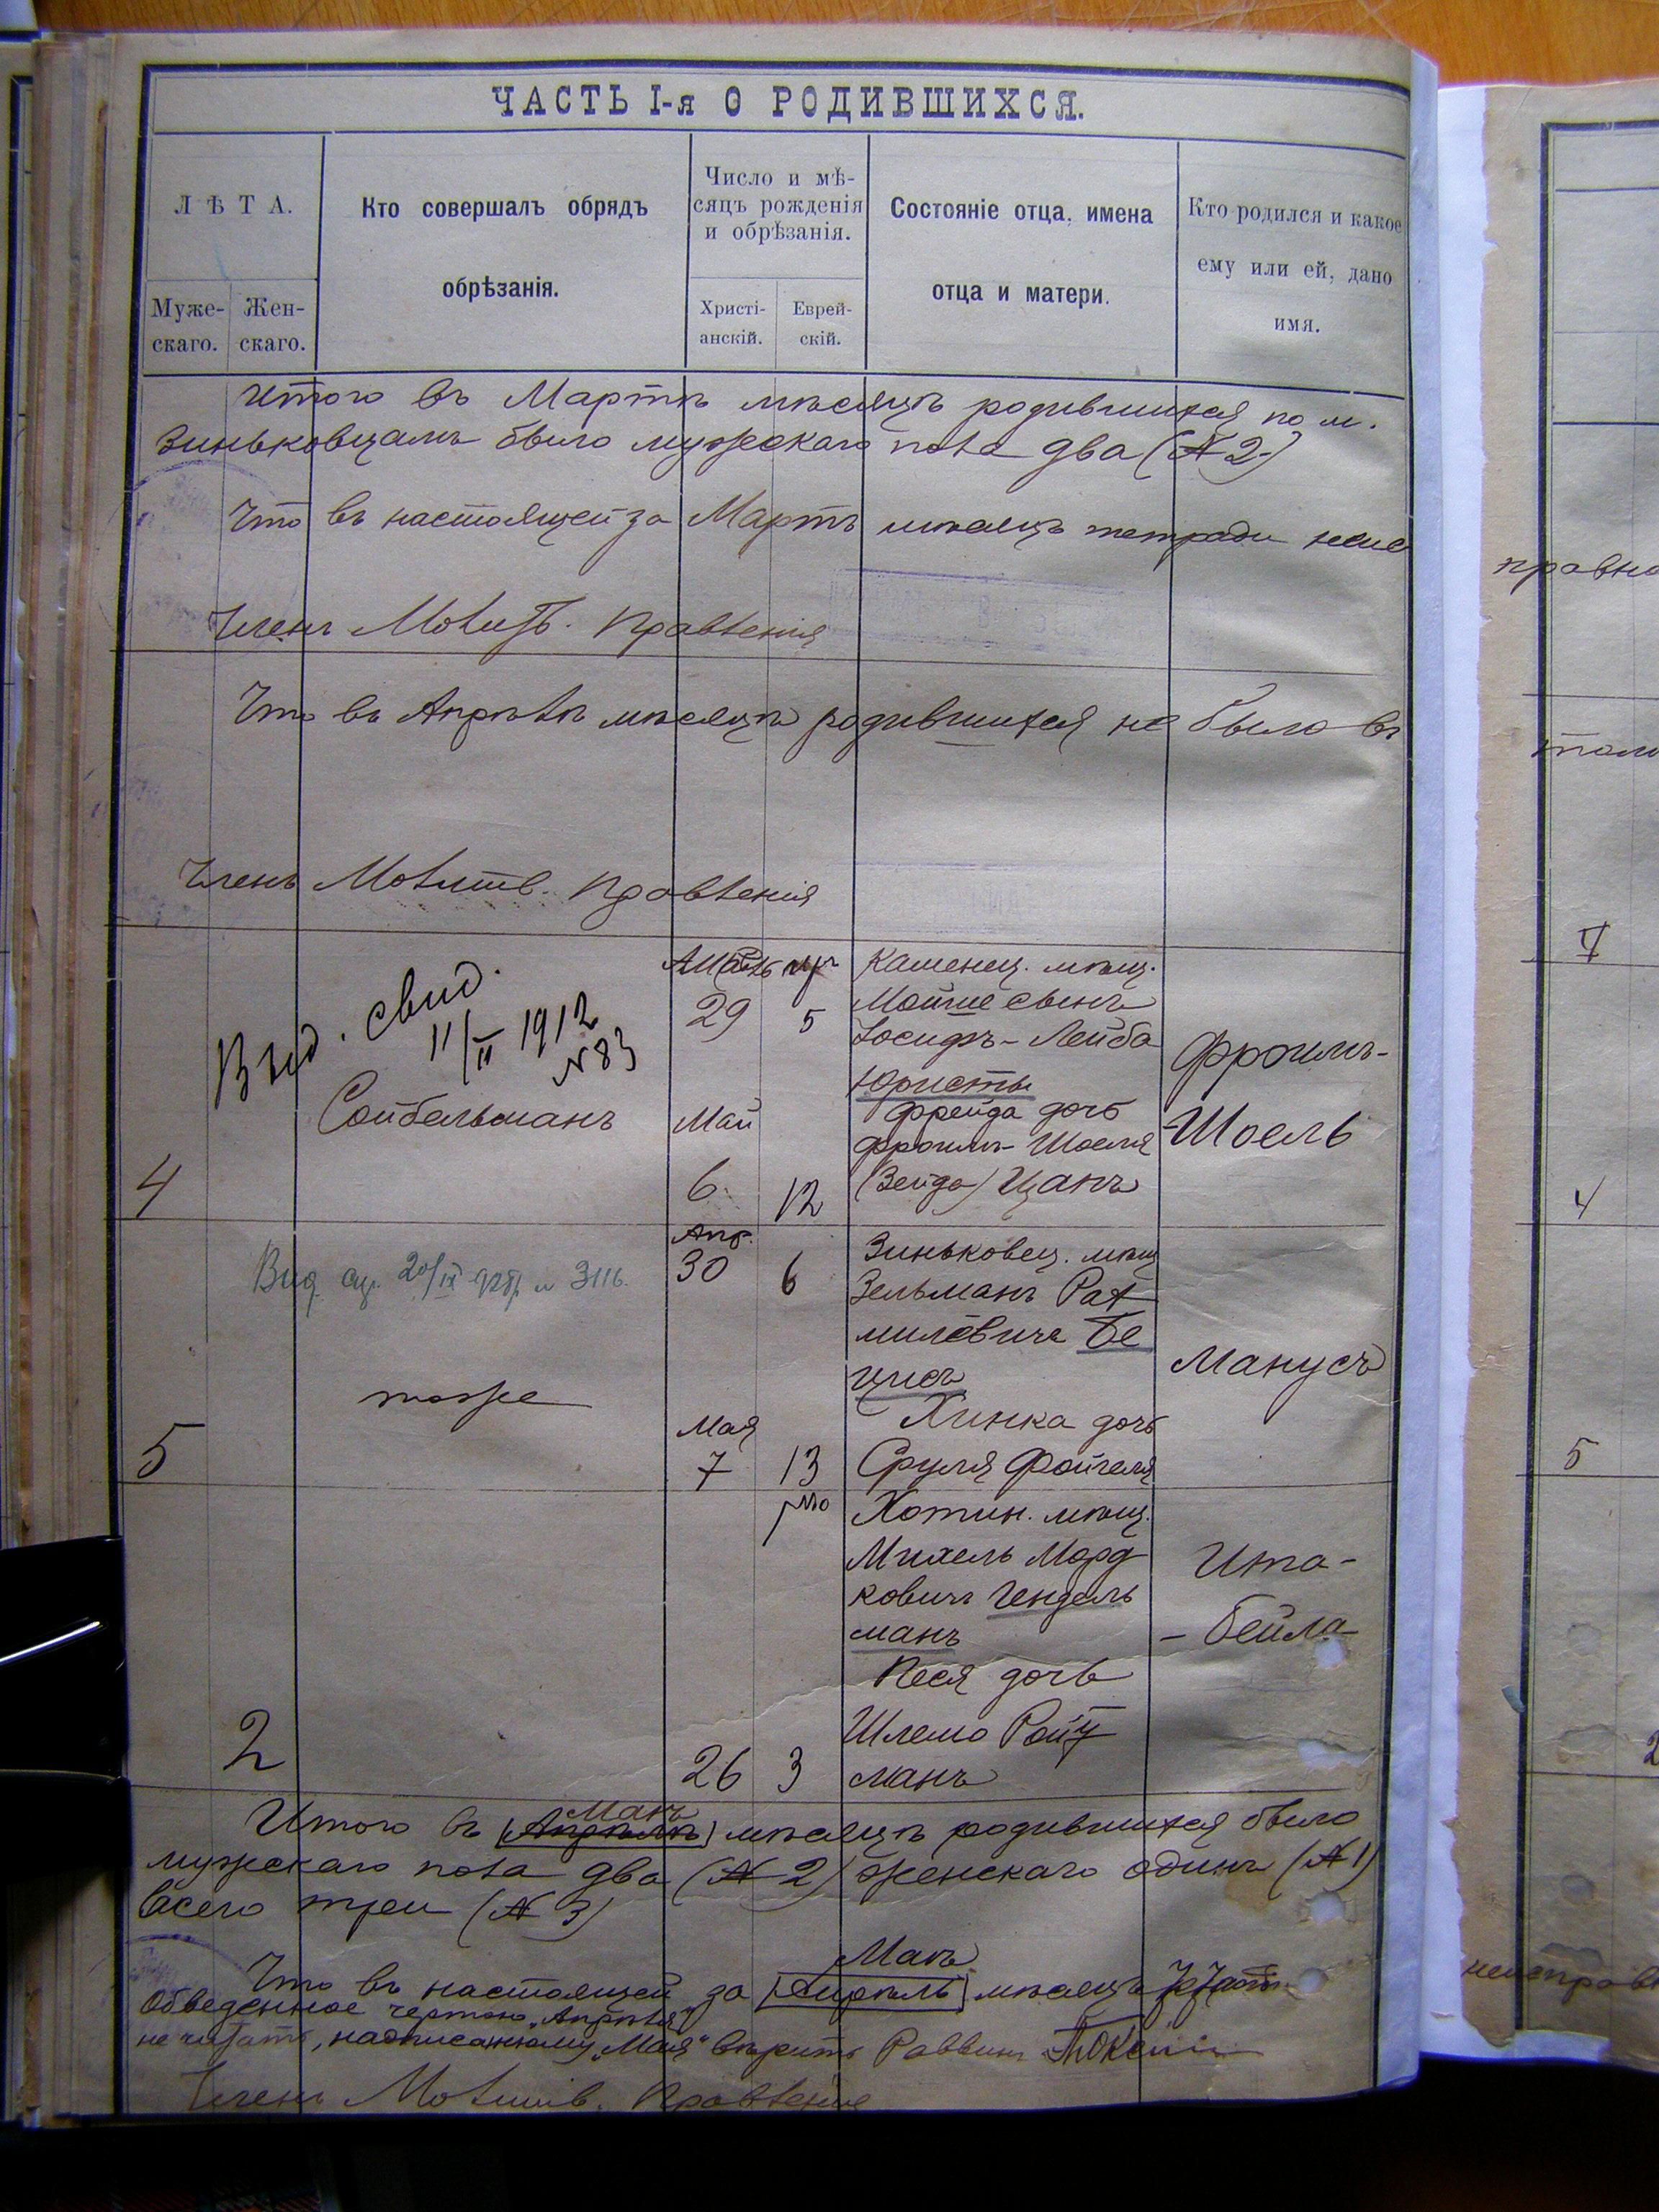 ЧАСТЬ I-я О РОДИВШИХСЯ.
ЛѢТА.
Муже-
скаго.
Жен-
скаго.
Кто совершалъ обрядъ
обрѣзанія.
Число и мѣ-
сяцъ рожденія
и обрѣзанія.
Христі-
анскій.
Еврей-
скій.
Состояніе отца, имена
отца и матери.
Кто родился и какое
ему или ей, дано
имя.
Итого въ Мартѣ мѣсяцѣ родившихся по м.
Зиньковцамъ было мужескаго пола два (№ 2)
Что въ настоящей за Мартъ мѣсяцъ тетради неис
правно
Членъ Молитв. Правленія
Что въ Апрѣлѣ мѣсяцѣ родившихся не было въ
Членъ Молитв. Правленія
Выд. свид.
11/II 1912
№ 83
4
Сойбельманъ
29 5
Май
6 12
Каменец. мѣщ.
Мойше сынъ
Іосифъ-Лейба
Юристы
Фрейда дочь
Фроимъ-Шоеля
(Зейда) Цанъ
Фроимъ-
-Шоель
4
5
тоже
Апр.
30 6
Мая
7 13
Зиньковец. мѣщ
Зельманъ Рах
миловичъ Бе
цисъ
Хинка дочь
Сруля Фойгеля
Манусъ
5
2
26 3
Хотин. мѣщ.
Михель Морд
ковичъ Гендель
манъ
Песя дочь
Шлемо Рой
манъ
Ита-
-бейла
2
Маѣ
Итого въ [Апрѣлѣ] мѣсяцѣ родившихся было
мужескаго пола два (№ 2) женскаго одинъ (№ 1)
всего три (№ 3)
Май
Что въ настоящей за [Апрѣль] мѣсяцъ
Обведенное чертою „Апрѣля"
не читать, надписанному „Мая" вѣрить Раввинъ
Членъ Молитв. Правленія